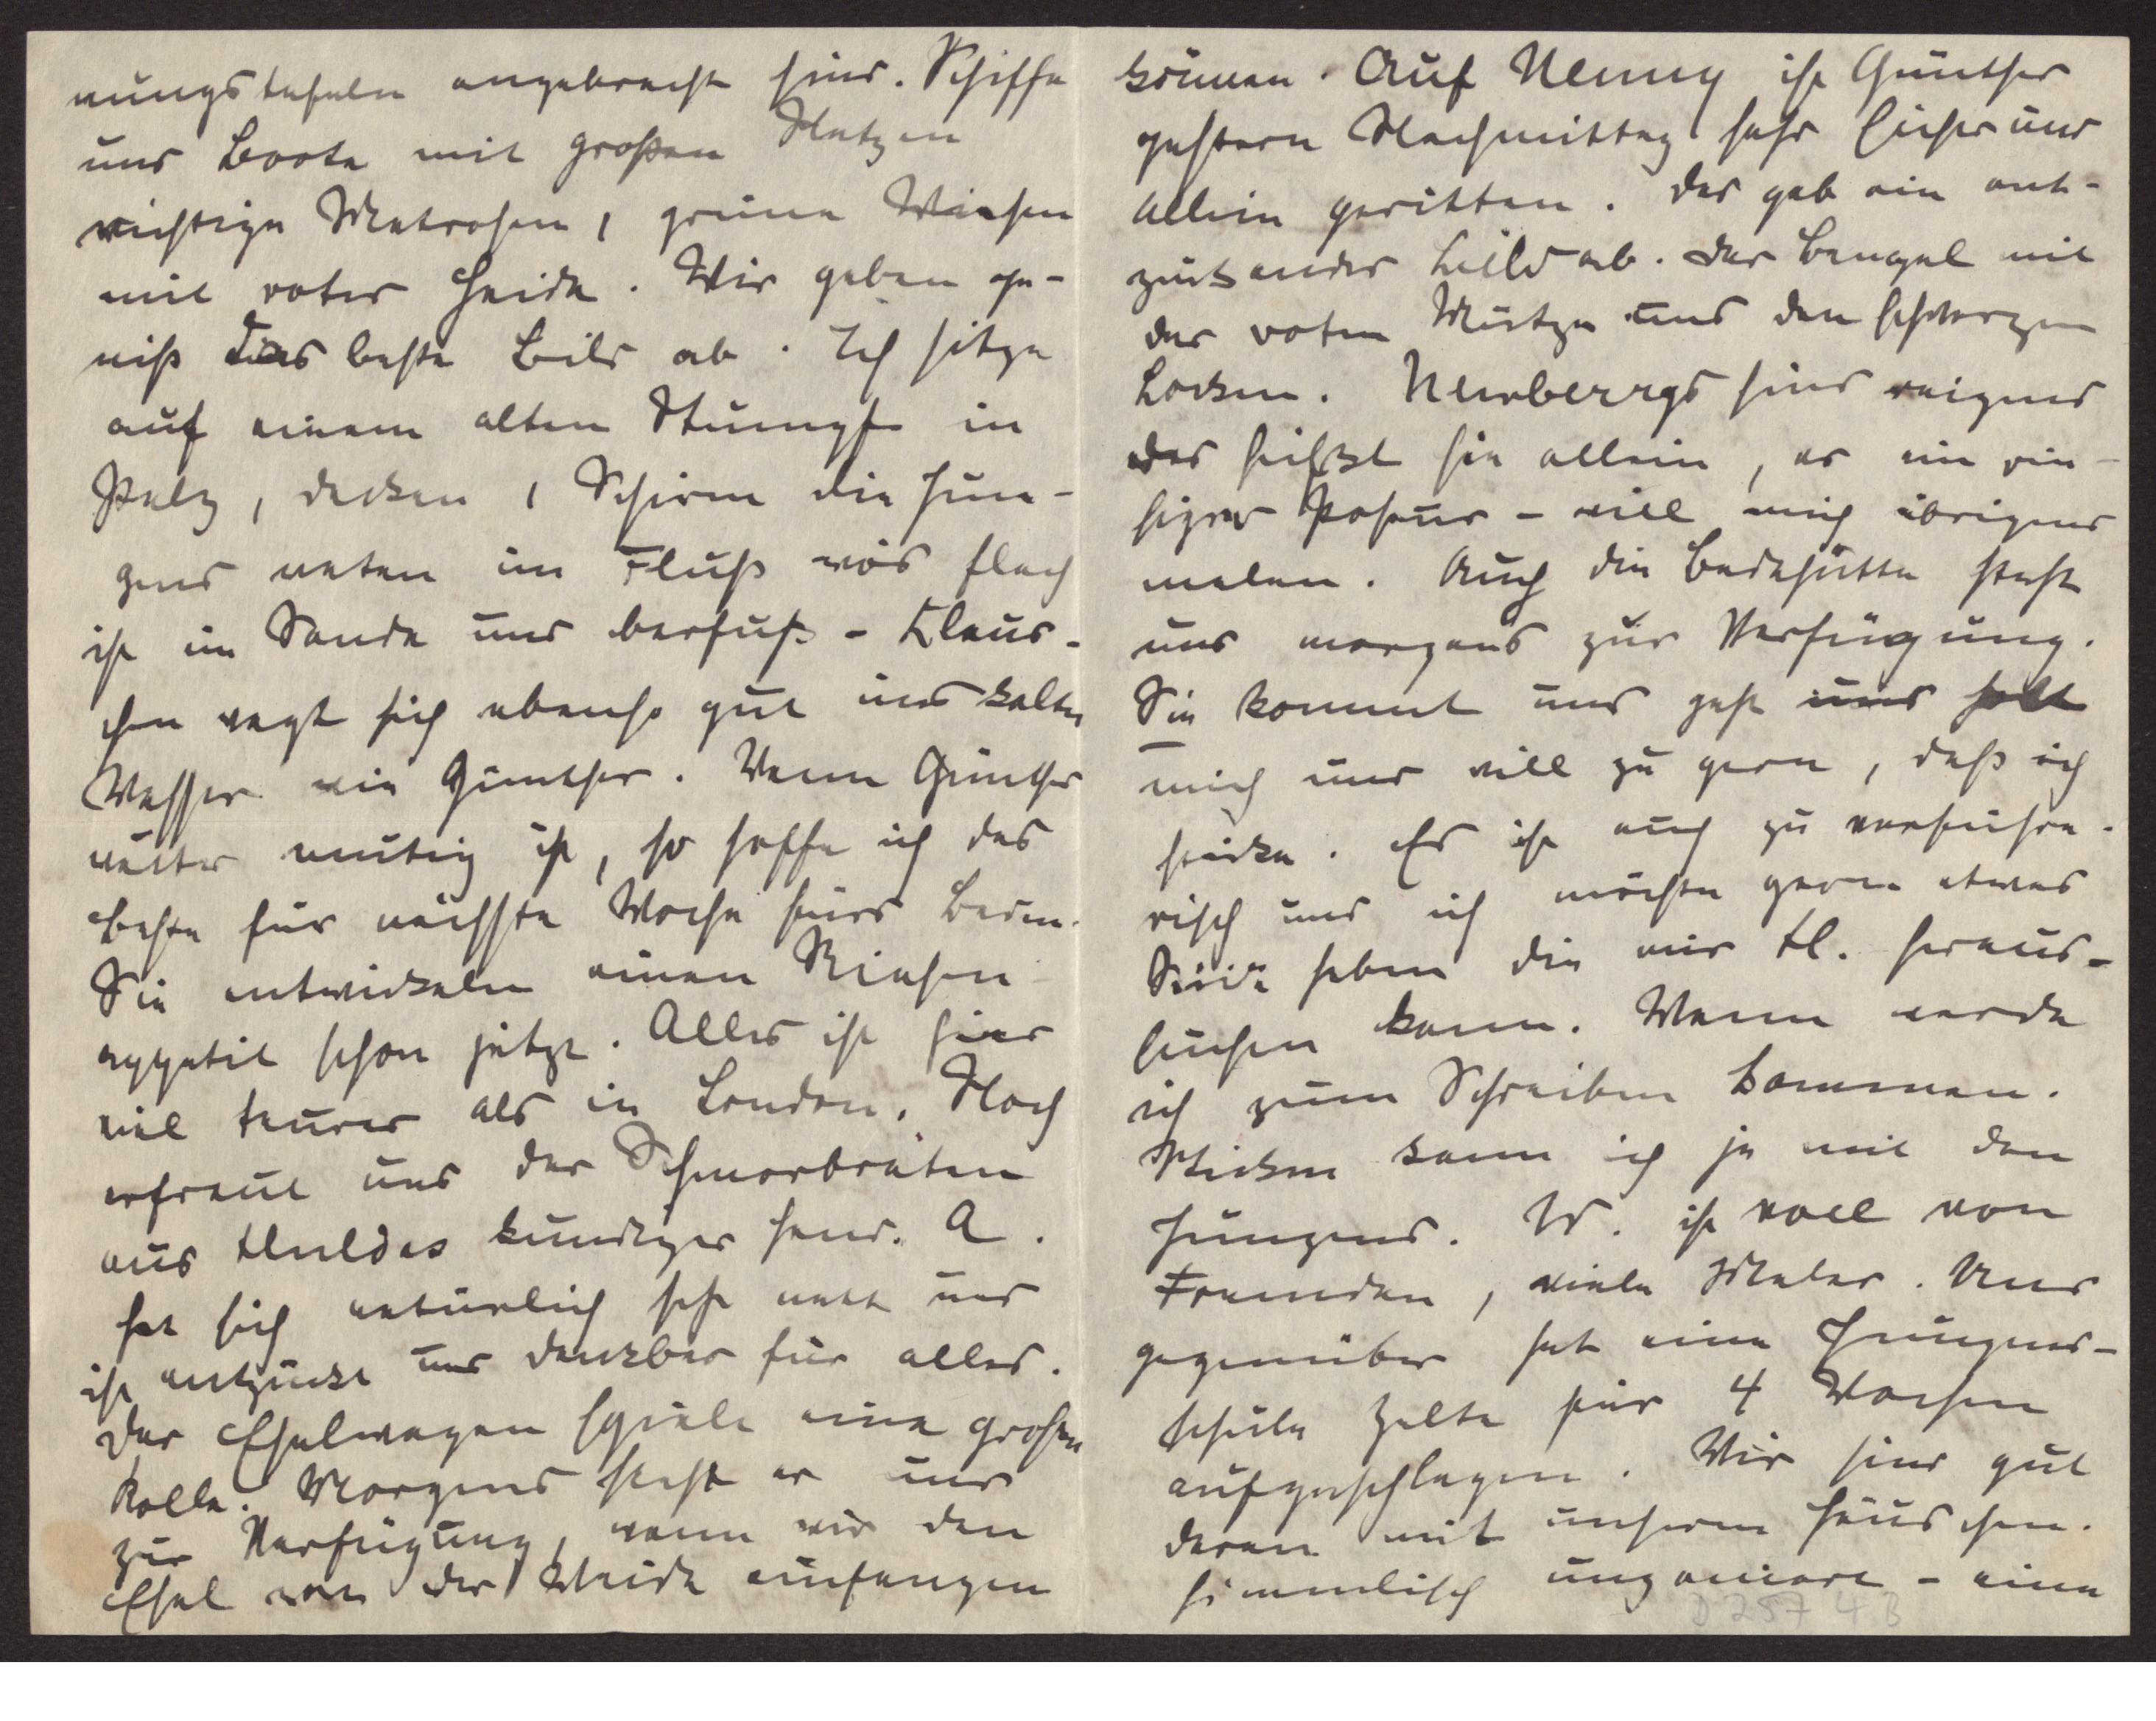 nungstafeln angebracht sind. Schiffe
und Boote mit großen Netzen
richtige Matrosen, grüne Wiesen
mit roter Heide. Wir geben ge-
wiß das beste Bild ab. Ich sitze
auf einem alten Stumpf in
Pelz, decken, Schirm die Jun-
gens waten im Fluß wos flach
ist im Sande und barfuß - Klaus-
chen wagt sich ebenso gut ins kalte
Wasser wie Günther. Wenn Günther
weiter mutig ist, so hoffe ich das
beste für nächste Woche fürs Baden.
Sie entwickeln einen Riesen
appetit schon jetzt. Alles ist hier
viel teurer als in London. Noch
erfreut uns der Schmorbraten
aus Huldas kundiger Hand. A.
hat sich natürlich sehr nett und
ist entzückt und dankbar für alles.
Der Eselwagen spielt eine große
Rolle. Morgens steht er uns
zur Verfügung, wenn wir den
Esel von der Weide einfangen
können. Auf Nenny ist Günther
gestern Nachmittag sehr sicher und
allein geritten. Das gab ein ent-
zückendes Bild ab. Der Bengel mit
der roten Mütze und den schwarzen
Locken. sind reizend
das heißt sie allein, er ein rie-
siger Poseur - will mich übrigens
malen. Auch die Badehütte steht
uns morgens zur Verfügung.
Sie kommt und geht und holt
mich und will zu gern, daß ich
sticke. Es ist auch zu verführe-
risch und ich möchte gerne etwas
Seide haben die mir Kl. heraus-
suchen kann. Wann werde
ich zum Schreiben kommen.
Sticken kann ich ja mit den
Jungens. W. ist voll von
Fremden, viele Maler. Uns
gegenüber hat eine Jungens-
schule Zelte für 4 Wochen
aufgeschlagen. Wir sind gut
daran mit unserem Häuschen.
himmlisch ungeniert - eine
D 257 4 B